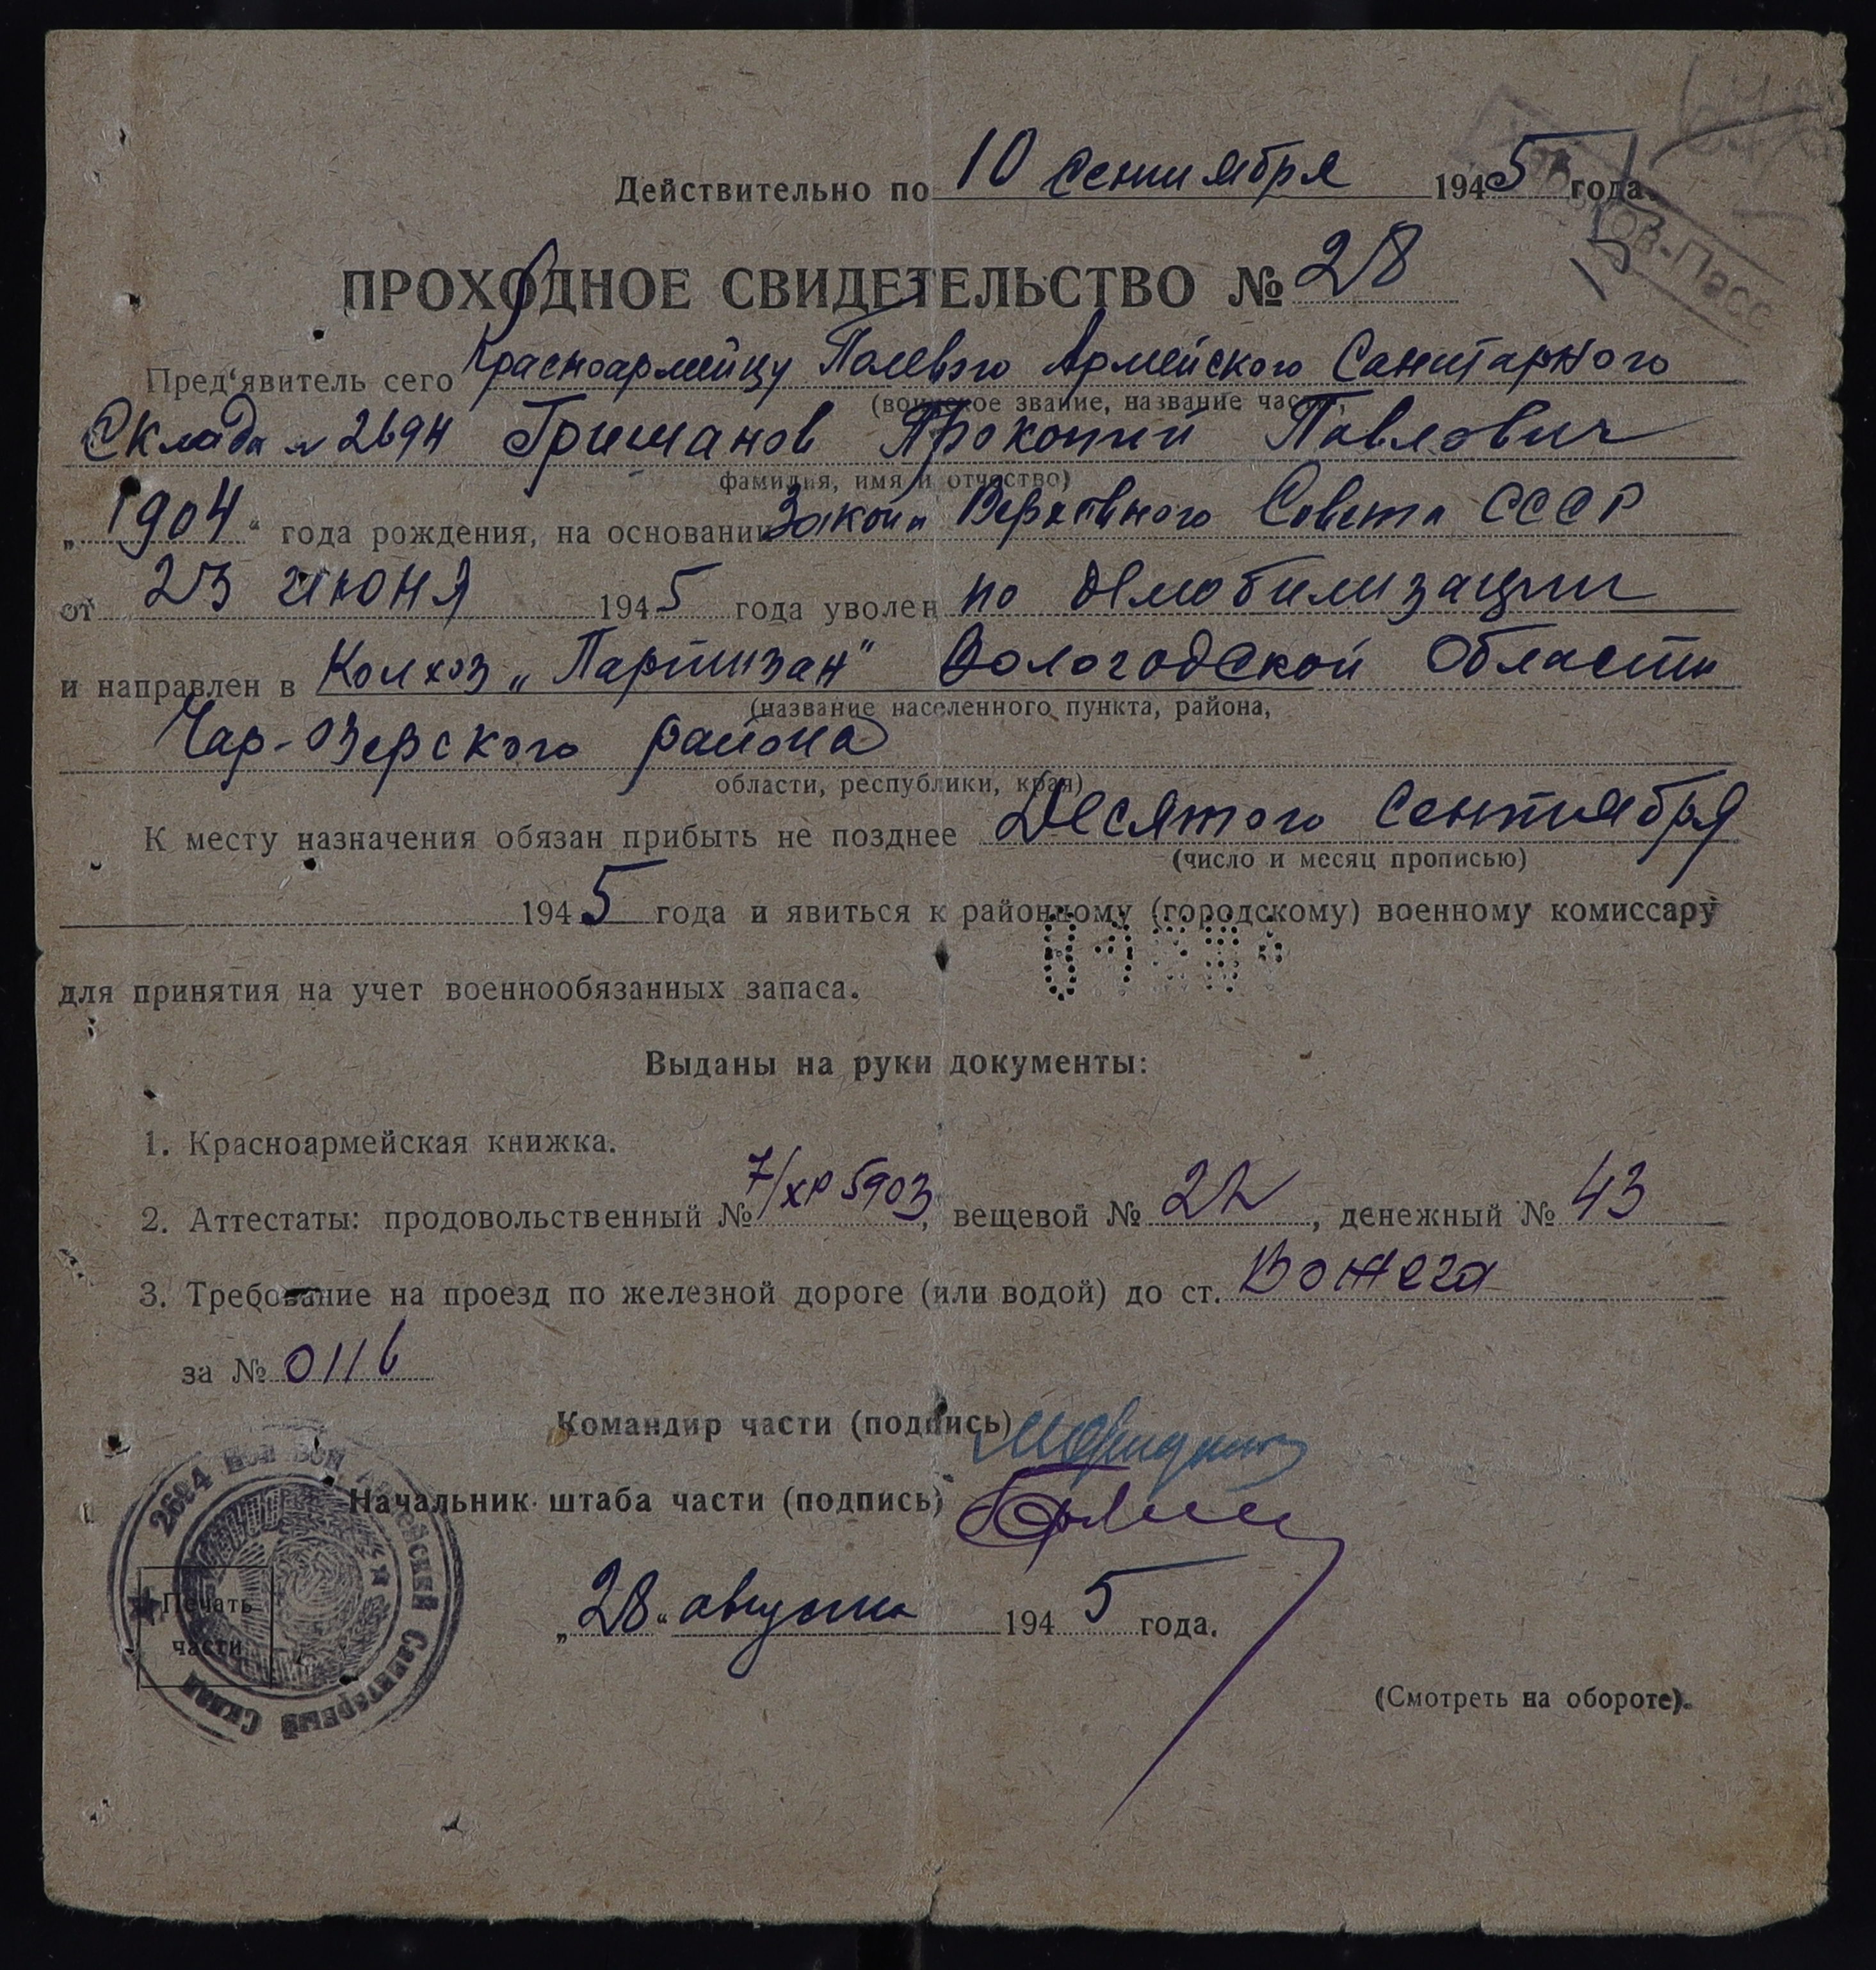 Действительно по 10 сентября 1945 года.
ПРОХОДНОЕ СВИДЕТЕЛЬСТВО № 28
Пред‘явитель сего Красноармейцу Полевого Армейского Санитарного
(воинское звание, название части,
Склада № 2694 Гришанов Прокопий Павлович
фамилия, имя и отчество)
„1904“ года рождения, на основании Закона Верховного Совета СССР
от 23 июня 1945 года уволен по демобилизации
и направлен в Колхоз „Партизан" Вологодской Области
(название населенного пункта, района,
Чар-Озерского района
области, республики, края)
К месту назначения обязан прибыть не позднее Десятого Сентября
(число и месяц прописью)
1945 года и явиться к районному (городскому) военному комиссару
для принятия на учет военнообязанных запаса.
Выданы на руки документы:
1. Красноармейская книжка.
2. Аттестаты: продовольственный № 7/ХР 5903, вещевой № 22, денежный № 43
3. Требование на проезд по железной дороге (или водой) до ст. Вожега
за № 0116
Командир части (подпись)
Начальник штаба части (подпись)
2694 Армейский Санитарный Склад
Печать
части
„28“ августа 1945 года.
(Смотреть на обороте).